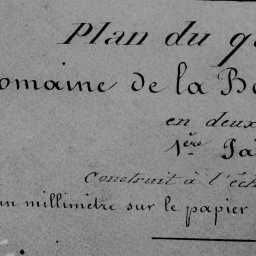 Plan du
omaine de la
en deux
1ère
Construit à l'éch
un millimètre sur le papier